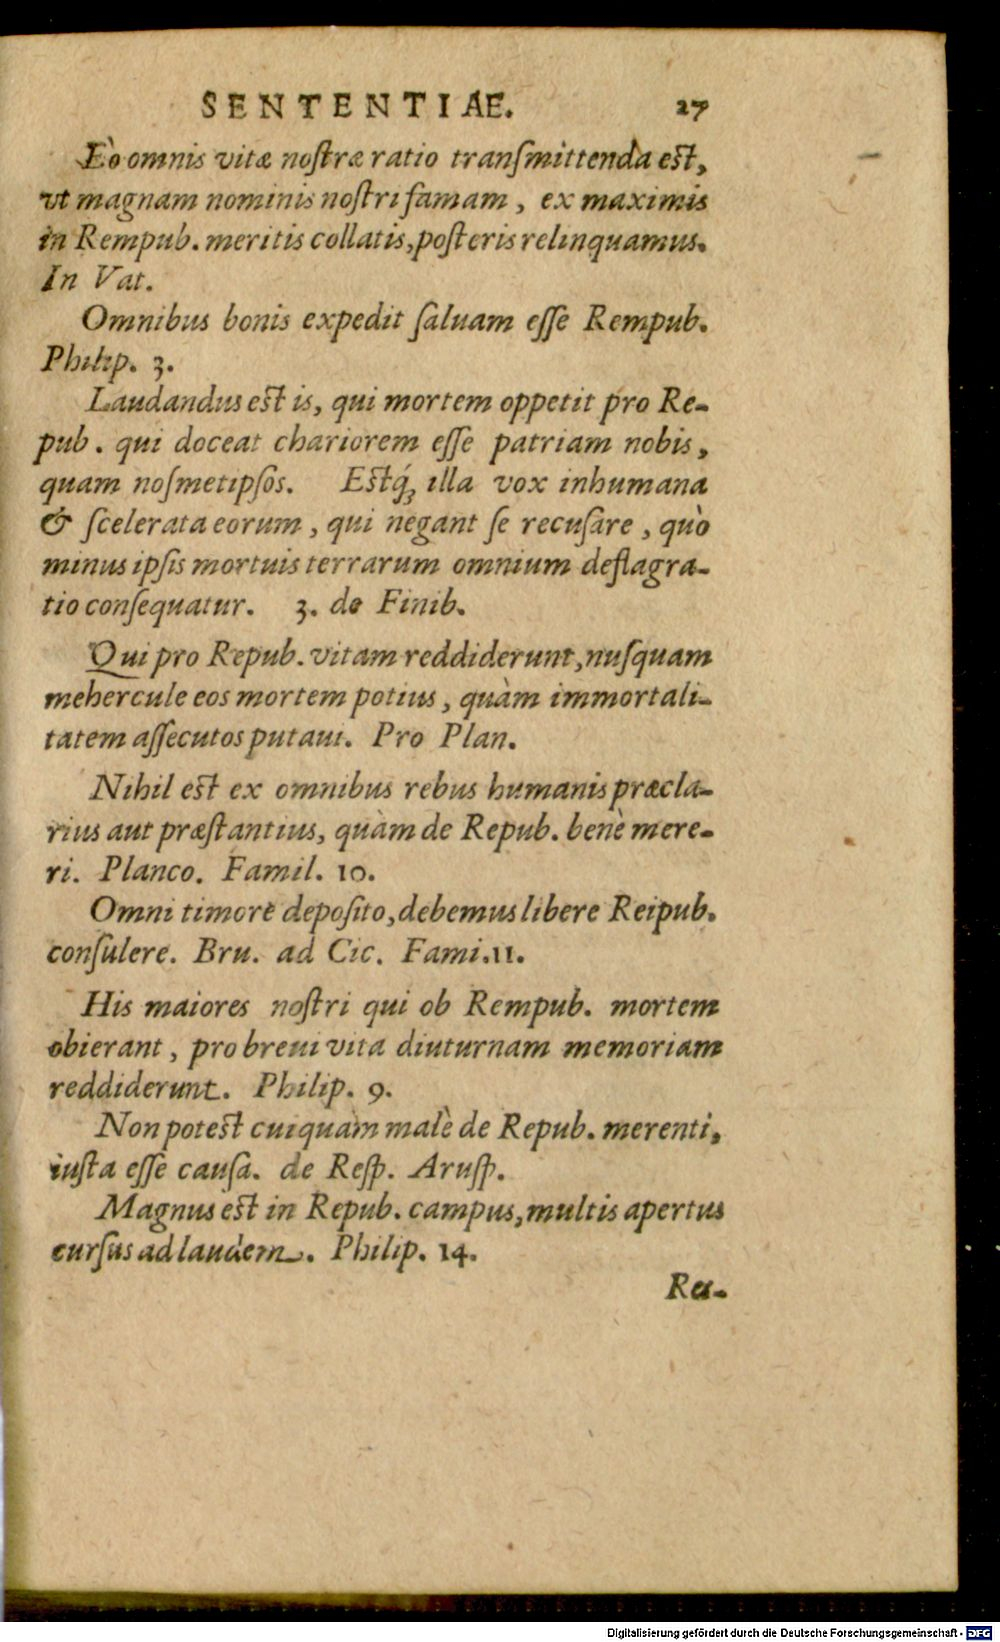 SENTENTIAE. 27
Eò omnis vitæ nostræ ratio transmittenda est,
vt magnam nominis nostri famam, ex maximis
in Rempub. meritis collatis, posteris relinquamus.
In Vat.
Omnibus bonis expedit saluam esse Rempub.
Philip. 3.
Laudandus est is, qui mortem oppetit pro Re-
pub. qui doceat chariorem esse patriam nobis,
quam nosmetipsos. Estq́; illa vox inhumana
& scelerata eorum, qui negant se recusare, quò
minus ipsis mortuis terrarum omnium deflagra-
tio consequatur. 3. de Finib.
Qui pro Repub. vitam reddiderunt, nusquam
mehercule eos mortem potius, quàm immortali-
tatem assecutos putaui. Pro Plan.
Nihil est ex omnibus rebus humanis præcla-
rius aut præstantius, quàm de Repub. benè mere-
ri. Planco. Famil. 10.
Omni timore deposito, debemus libere Reipub.
consulere. Bru. ad Cic. Fami. 11.
His maiores nostri qui ob Rempub. mortem
obierant, pro breui vita diuturnam memoriam
reddiderunt. Philip. 9.
Non potest cuiquam malè de Repub. merenti,
iusta esse causa. de Resp. Arusp.
Magnus est in Repub. campus, multis apertus
cursus ad laudem. Philip. 14.
Re-
Digitalisierung gefördert durch die Deutsche Forschungsgemeinschaft - DFG